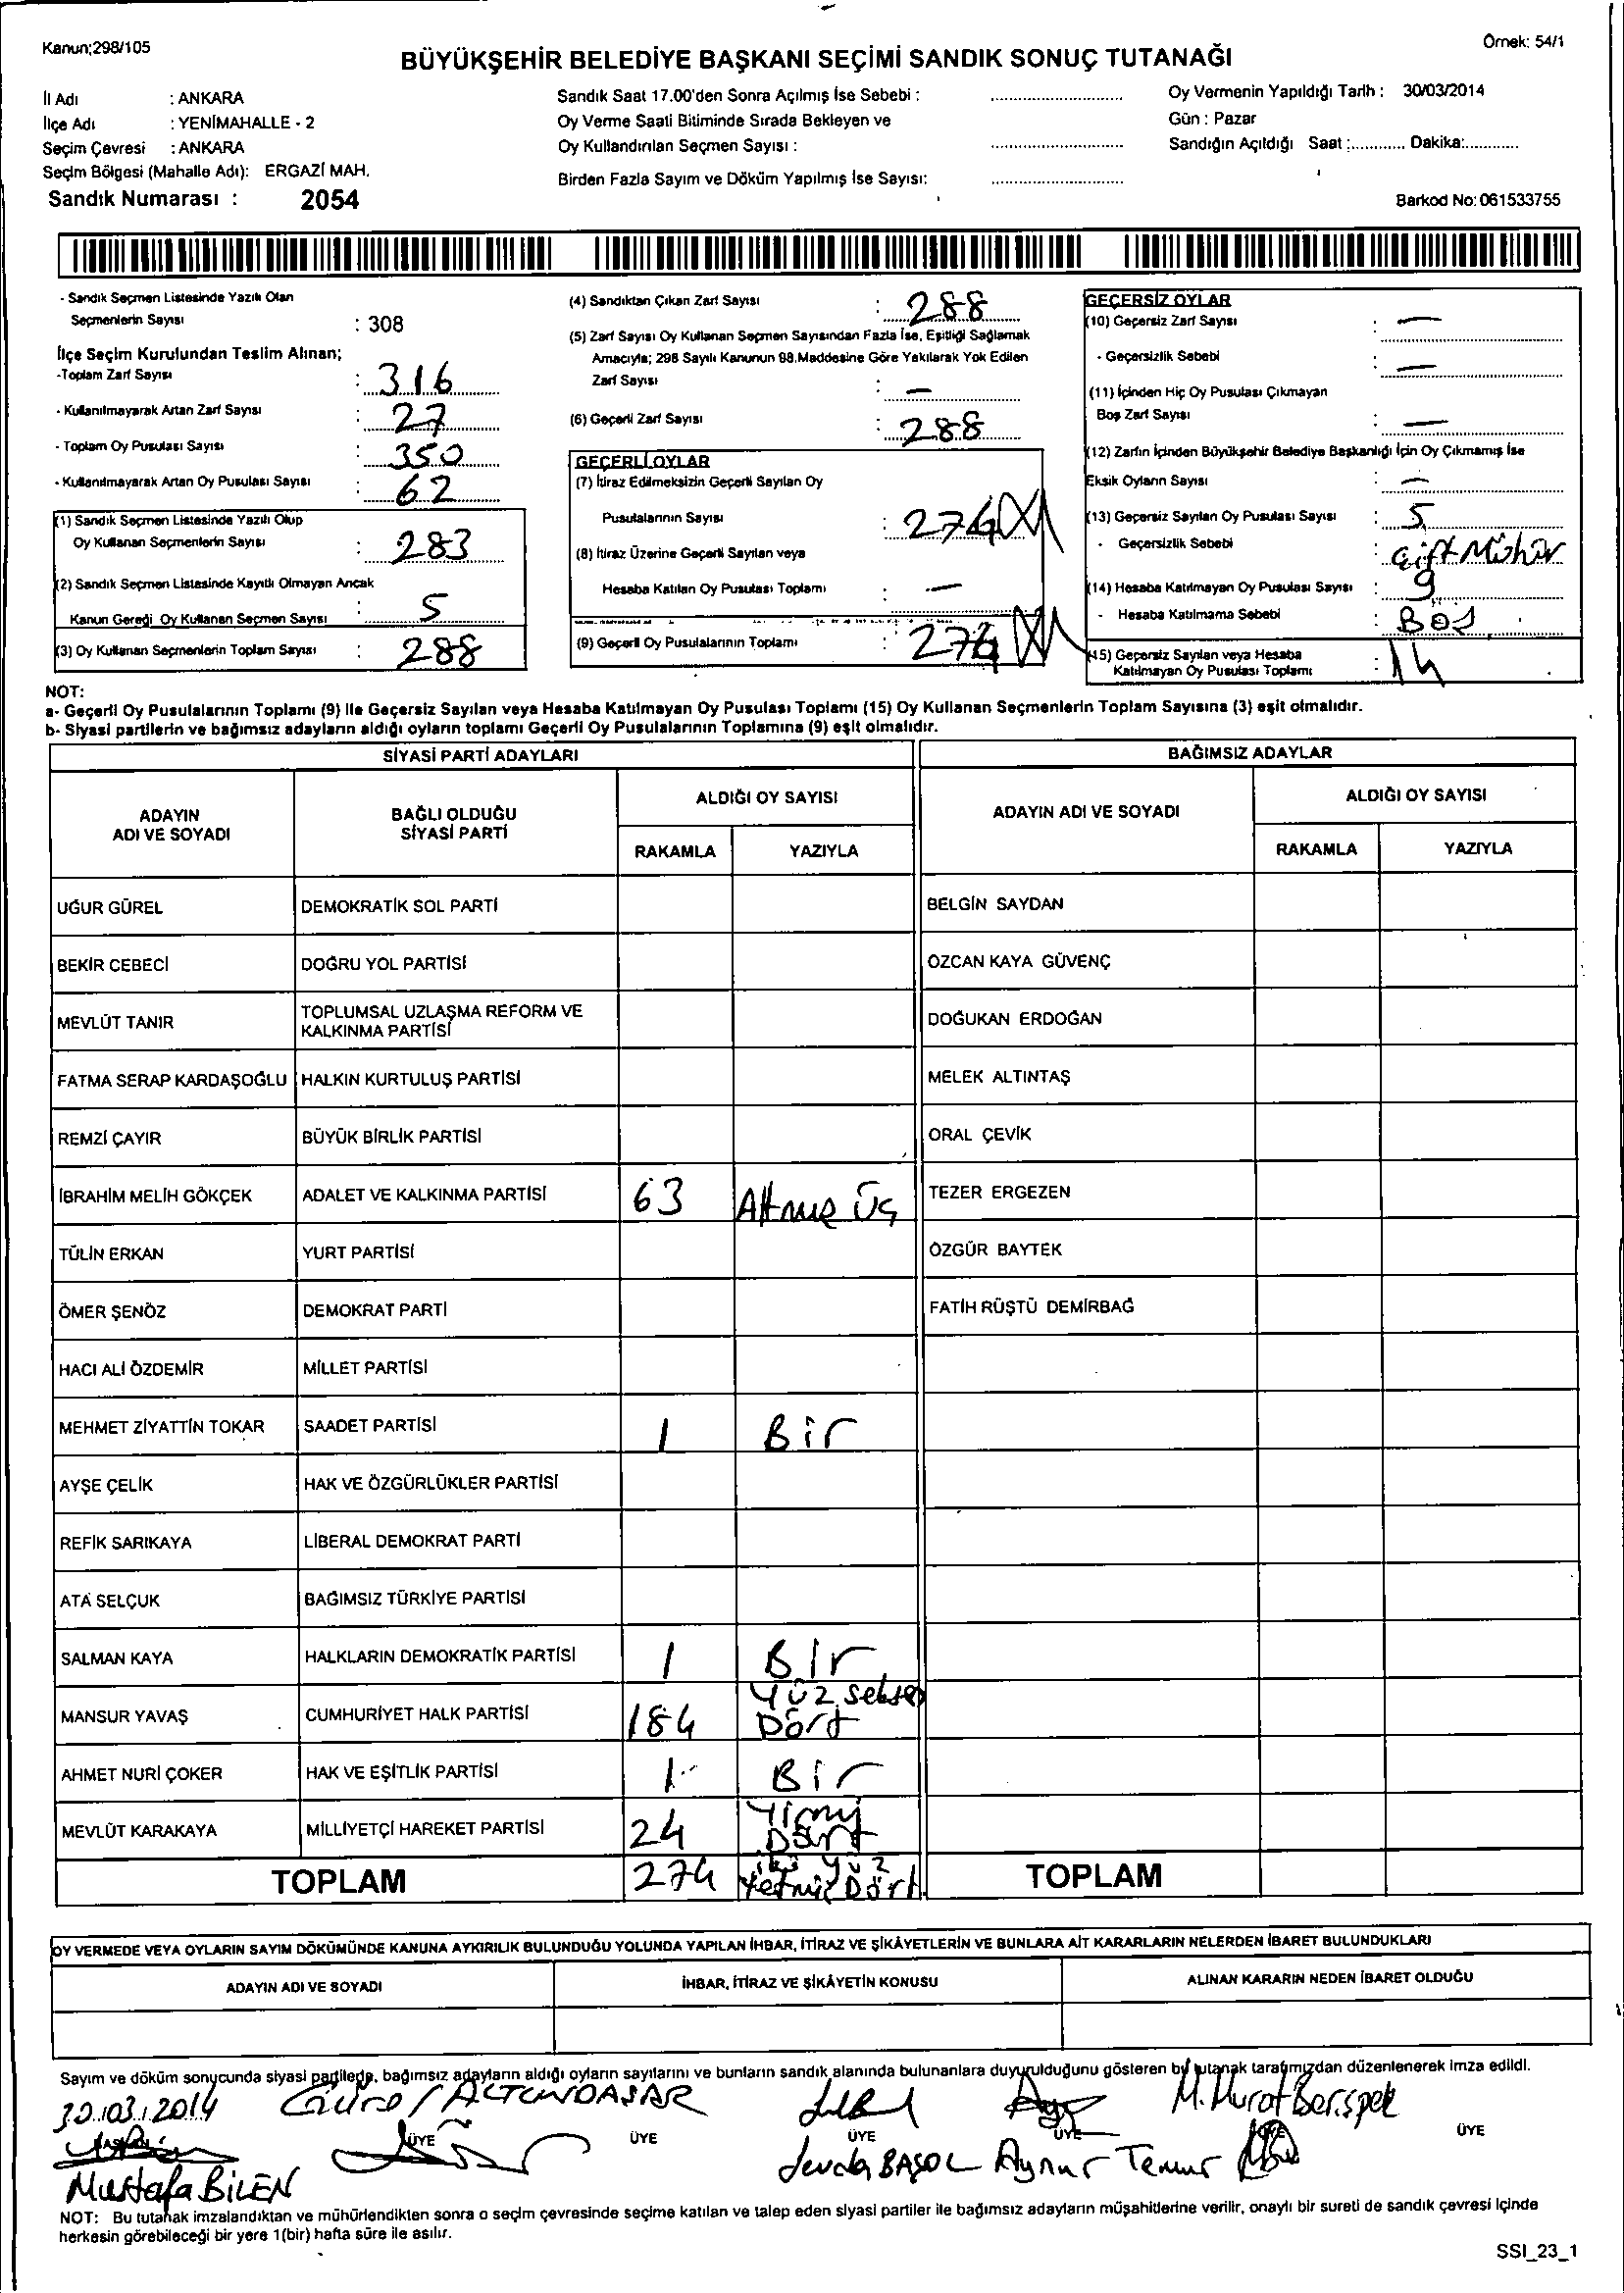 Kanun;298/105
Örnek: 54/1
BÜYÜKŞEHİR BELEDİYE BAŞKANI SEÇİMİ SANDIK SONUÇ TUTANAĞI
İl Adı : ANKARA
İlçe Adı : YENİMAHALLE - 2
Seçim Çevresi : ANKARA
Seçim Bölgesi (Mahalle Adı): ERGAZİ MAH.
Sandık Numarası : 2054
Sandık Saat 17.00'den Sonra Açılmış İse Sebebi :
Oy Verme Saati Bitiminde Sırada Bekleyen ve
Oy Kullandırılan Seçmen Sayısı :
Birden Fazla Sayım ve Döküm Yapılmış İse Sayısı:
Oy Vermenin Yapıldığı Tarih : 30/03/2014
Gün : Pazar
Sandığın Açıldığı Saat :............ Dakika:............
Barkod No: 061533755
- Sandık Seçmen Listesinde Yazılı Olan
Seçmenlerin Sayısı : 308
İlçe Seçim Kurulundan Teslim Alınan;
-Toplam Zarf Sayısı : 316
- Kullanılmayarak Artan Zarf Sayısı : 27
- Toplam Oy Pusulası Sayısı : 350
- Kullanılmayarak Artan Oy Pusulası Sayısı : 62
(1) Sandık Seçmen Listesinde Yazılı Olup
Oy Kullanan Seçmenlerin Sayısı : 283
(2) Sandık Seçmen Listesinde Kayıtlı Olmayan Ancak
Kanun Gereği Oy Kullanan Seçmen Sayısı : 5
(3) Oy Kullanan Seçmenlerin Toplam Sayısı : 288
(4) Sandıktan Çıkan Zarf Sayısı : 288
(5) Zarf Sayısı Oy Kullanan Seçmen Sayısından Fazla İse, Eşitliği Sağlamak
Amacıyla; 298 Sayılı Kanunun 98.Maddesine Göre Yakılarak Yok Edilen
Zarf Sayısı : —
(6) Geçerli Zarf Sayısı : 288
GEÇERLİ OYLAR
(7) İtiraz Edilmeksizin Geçerli Sayılan Oy
Pusulalarının Sayısı : 274
(8) İtiraz Üzerine Geçerli Sayılan veya
Hesaba Katılan Oy Pusulası Toplamı : —
(9) Geçerli Oy Pusulalarının Toplamı : 274
GEÇERSİZ OYLAR
(10) Geçersiz Zarf Sayısı : —
- Geçersizlik Sebebi : —
(11) İçinden Hiç Oy Pusulası Çıkmayan
Boş Zarf Sayısı : —
(12) Zarfın İçinden Büyükşehir Belediye Başkanlığı İçin Oy Çıkmamış İse
Eksik Oyların Sayısı : —
(13) Geçersiz Sayılan Oy Pusulası Sayısı : 5
- Geçersizlik Sebebi : Çift Mühür
(14) Hesaba Katılmayan Oy Pusulası Sayısı : 9
- Hesaba Katılmama Sebebi : Boş
(15) Geçersiz Sayılan veya Hesaba
Katılmayan Oy Pusulası Toplamı : 14
NOT:
a- Geçerli Oy Pusulalarının Toplamı (9) İle Geçersiz Sayılan veya Hesaba Katılmayan Oy Pusulası Toplamı (15) Oy Kullanan Seçmenlerin Toplam Sayısına (3) eşit olmalıdır.
b- Siyasi partilerin ve bağımsız adayların aldığı oyların toplamı Geçerli Oy Pusulalarının Toplamına (9) eşit olmalıdır.
SİYASİ PARTİ ADAYLARI
BAĞIMSIZ ADAYLAR
ADAYIN
ADI VE SOYADI
BAĞLI OLDUĞU
SİYASİ PARTİ
ALDIĞI OY SAYISI
RAKAMLA YAZIYLA
ADAYIN ADI VE SOYADI
ALDIĞI OY SAYISI
RAKAMLA YAZIYLA
UĞUR GÜREL DEMOKRATİK SOL PARTİ BELGİN SAYDAN
BEKİR CEBECİ DOĞRU YOL PARTİSİ ÖZCAN KAYA GÜVENÇ
MEVLÜT TANIR TOPLUMSAL UZLAŞMA REFORM VE
KALKINMA PARTİSİ DOĞUKAN ERDOĞAN
FATMA SERAP KARDAŞOĞLU HALKIN KURTULUŞ PARTİSİ MELEK ALTINTAŞ
REMZİ ÇAYIR BÜYÜK BİRLİK PARTİSİ ORAL ÇEVİK
İBRAHİM MELİH GÖKÇEK ADALET VE KALKINMA PARTİSİ 63 Altmış Üç TEZER ERGEZEN
TÜLİN ERKAN YURT PARTİSİ ÖZGÜR BAYTEK
ÖMER ŞENÖZ DEMOKRAT PARTİ FATİH RÜŞTÜ DEMİRBAĞ
HACI ALİ ÖZDEMİR MİLLET PARTİSİ
MEHMET ZİYATTİN TOKAR SAADET PARTİSİ 1 Bir
AYŞE ÇELİK HAK VE ÖZGÜRLÜKLER PARTİSİ
REFİK SARIKAYA LİBERAL DEMOKRAT PARTİ
ATA SELÇUK BAĞIMSIZ TÜRKİYE PARTİSİ
SALMAN KAYA HALKLARIN DEMOKRATİK PARTİSİ 1 Bir
MANSUR YAVAŞ CUMHURİYET HALK PARTİSİ 184 Yüz Seksen
Dört
AHMET NURİ ÇOKER HAK VE EŞİTLİK PARTİSİ 1 Bir
MEVLÜT KARAKAYA MİLLİYETÇİ HAREKET PARTİSİ 24 Yirmi
Dört
TOPLAM 274 iki yüz
Yetmiş Dört TOPLAM
OY VERMEDE VEYA OYLARIN SAYIM DÖKÜMÜNDE KANUNA AYKIRILIK BULUNDUĞU YOLUNDA YAPILAN İHBAR, İTİRAZ VE ŞİKÂYETLERİN VE BUNLARA AİT KARARLARIN NELERDEN İBARET BULUNDUKLARI
ADAYIN ADI VE SOYADI İHBAR, İTİRAZ VE ŞİKÂYETİN KONUSU ALINAN KARARIN NEDEN İBARET OLDUĞU
Sayım ve döküm sonucunda siyasi partilerin, bağımsız adayların aldığı oyların sayılarını ve bunların sandık alanında bulunanlara duyurulduğunu gösteren bu tutanak tarafımızdan düzenlenerek imza edildi.
30.03.2014 ALTUNDAŞAR M. Murat
BAŞKAN ÜYE ÜYE ÜYE ÜYE ÜYE ÜYE
Mustafa BİLEN Sevda BAŞOL Aynur Temur
NOT: Bu tutanak imzalandıktan ve mühürlendikten sonra o seçim çevresinde seçime katılan ve talep eden siyasi partiler ile bağımsız adayların müşahitlerine verilir, onaylı bir sureti de sandık çevresi içinde
herkesin görebileceği bir yere 1(bir) hafta süre ile asılır.
SSI_23_1